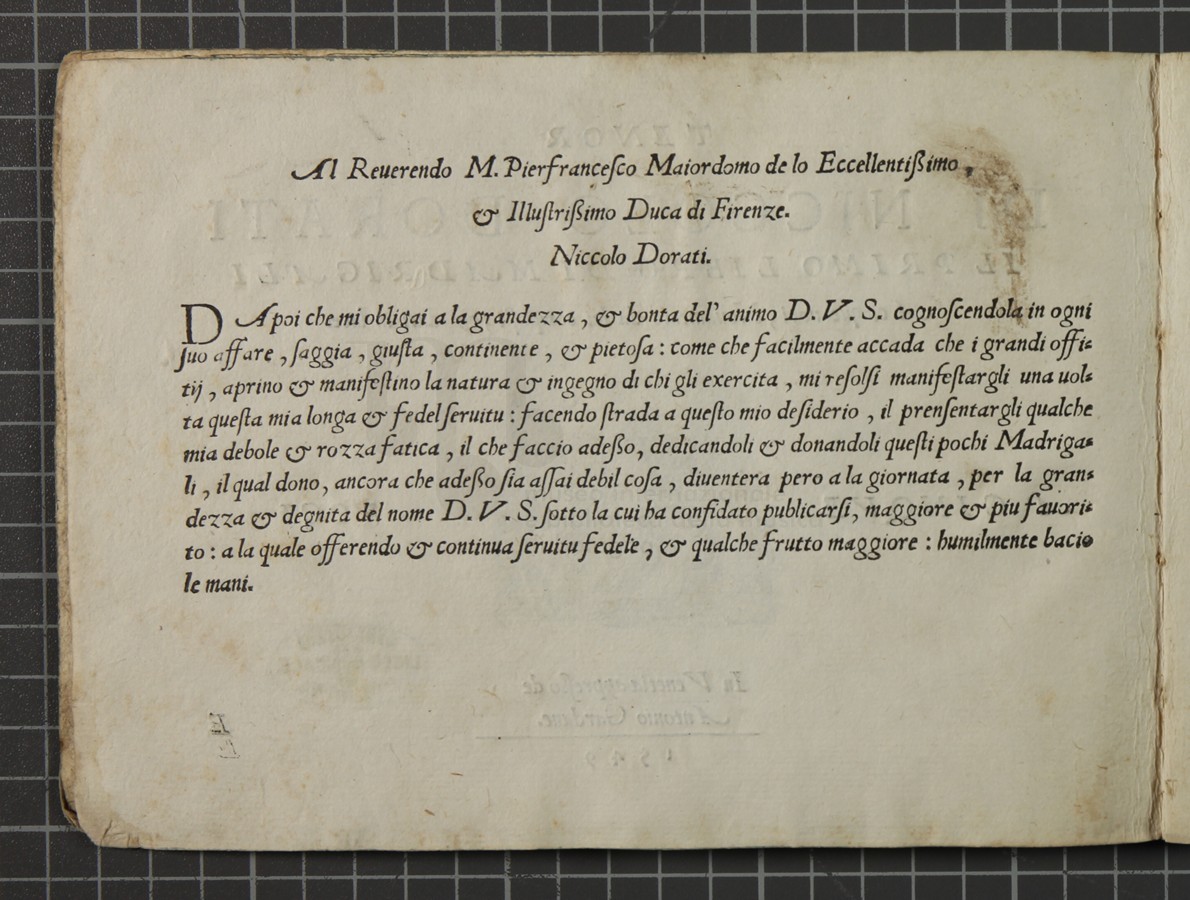 Al Reuerendo M. Pierfranceſco Maiordomo de lo Eccellentißimo,
& Illuſtrißimo Duca di Firenze.
Niccolo Dorati.
DApoi che mi obligai a la grandezza, & bonta del' animo D. V. S. cognoſcendola in ogni
ſuo affare, ſaggia, giuſta, continente, & pietoſa: come che facilmente accada che i grandi offi-
tij, aprino & manifeſtino la natura & ingegno di chi gli exercita, mi reſolſi manifeſtargli una uol-
ta queſta mia longa & fedel ſeruitu: facendo ſtrada a queſto mio deſiderio, il prenſentargli qualche
mia debole & rozza fatica, il che faccio adeßo, dedicandoli & donandoli queſti pochi Madriga-
li, il qual dono, ancora che adeßo ſia aſſai debil coſa, diuentera pero a la giornata, per la gran-
dezza & degnita del nome D. V. S. ſotto la cui ha confidato publicarſi, maggiore & piu fauori-
to: a la quale offerendo & continua ſeruitu fedele, & qualche frutto maggiore: humilmente bacio
le mani.